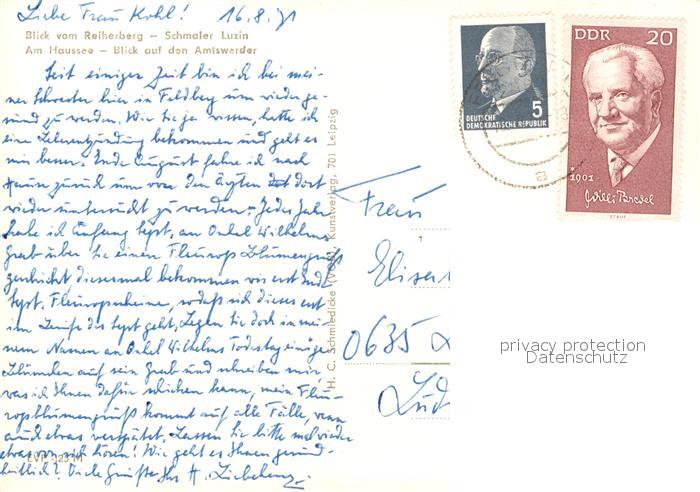 Liebe Frau Kohl! 16.8.71
Blick vom Reiherberg – Schmaler Luzin
Am Haussee – Blick auf den Amtswerder
Seit einiger Zeit bin ich bei mei-
ner Schwester hier in Feldberg um wieder ge-
sund zu werden. Wie Sie ja wissen, hatte ich
eine Leberentzündung bekommen und geht es
mir besser. Ende August fahre ich nach
Hause zurück um von den Ärzten dort
wieder untersucht zu werden. Jedes Jahr
habe ich Anfang Sept. an Onkel Wilhelms
Grab über Sie einen Fleurop Blumengruß
geschickt diesesmal bekommen wir erst Ende
Sept. Fleuropscheine, sodaß sich dieses erst
im Laufe des Sept geht. Legen Sie doch in mei-
nem Namen an Onkel Wilhelms Todestag einige
Blümchen auf sein Grab und schreiben mir,
was ich Ihnen dafür schicken kann, mein Fleu-
ropsblumengruß kommt auf alle Fälle, wenn
auch etwas verspätet. Lassen Sie bitte mal wieder
etwas von sich hören! Wie geht es Ihnen gesund-
heitlich? Viele Grüße Ihr H.
H. C. Schmiedicke (VOB), Kunstverlag, 701 Leipzig
DEUTSCHE
DEMOKRATISCHE REPUBLIK
5
DDR 20
1901
Willi Bredel
STAUF
Frau
0635
privacy protection
Datenschutz